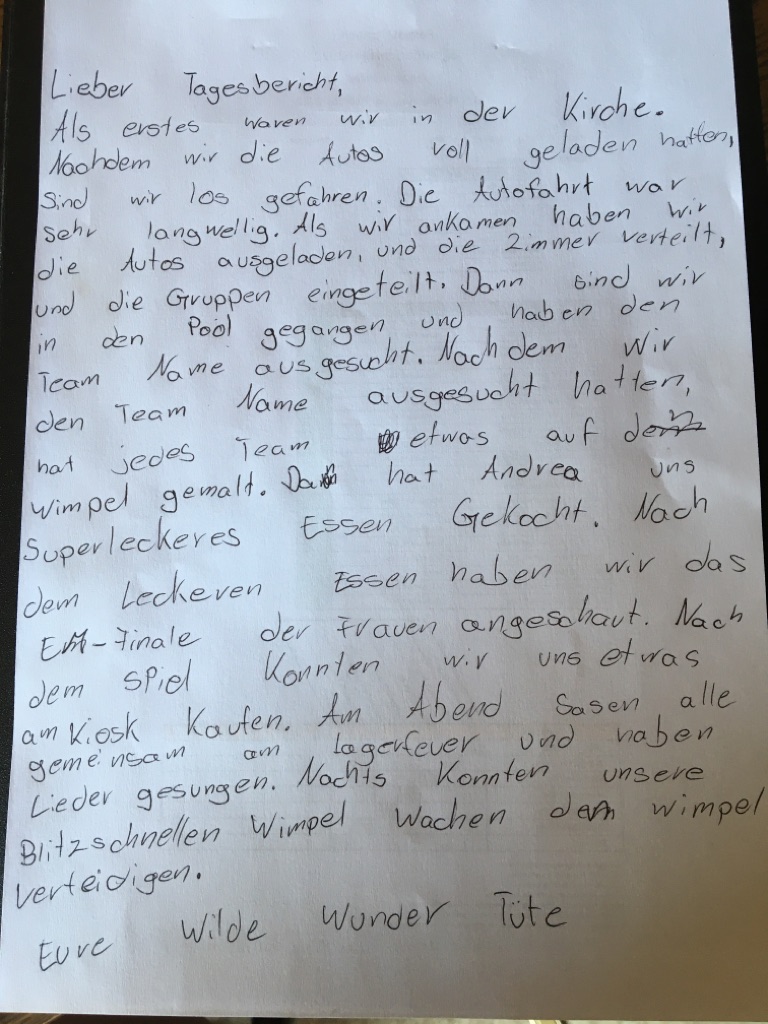 Lieber Tagesbericht,
Als erstes waren wir in der Kirche.
Nachdem wir die Autos voll geladen hatten,
sind wir los gefahren. Die Autofahrt war
sehr langwellig. Als wir ankamen haben wir
die Autos ausgeladen, und die Zimmer verteilt,
und die Gruppen eingeteilt. Dann sind wir
in den Pool gegangen und haben den
Team Name ausgesucht. Nach dem wir
den Team Name ausgesucht hatten,
hat jedes Team etwas auf den
Wimpel gemalt. Dan hat Andrea uns
Superleckeres Essen Gekocht. Nach
dem Leckeren Essen haben wir das
EM-Finale der Frauen angeschaut. Nach
dem Spiel Konnten wir uns etwas
am Kiosk Kaufen. Am Abend sasen alle
gemeinsam am Lagerfeuer und haben
Lieder gesungen. Nachts Konnten unsere
Blitzschnellen Wimpel Wachen den wimpel
verteidigen.
Eure Wilde Wunder Tüte